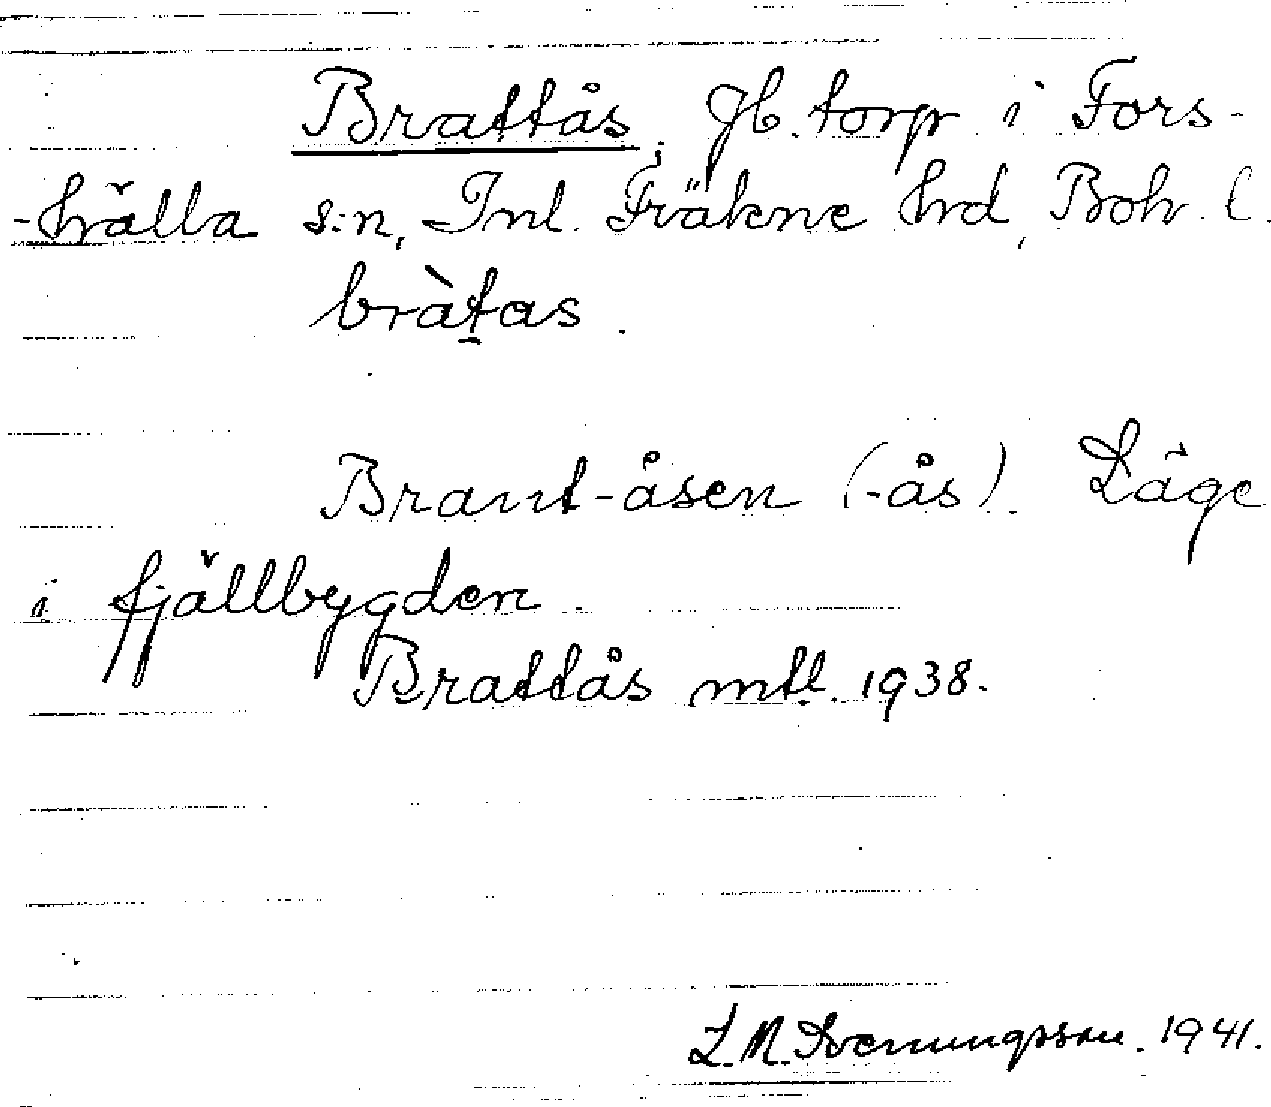 Brattås, Jb. torp i Fors-
-hälla s:n, Inl. Fräkne hrd, Boh. l.
bràt̠as.
Brant-åsen (-ås). Läge
i fjällbygden.
Brattås mtl. 1938.
L. M. Svenungsson. 1941.